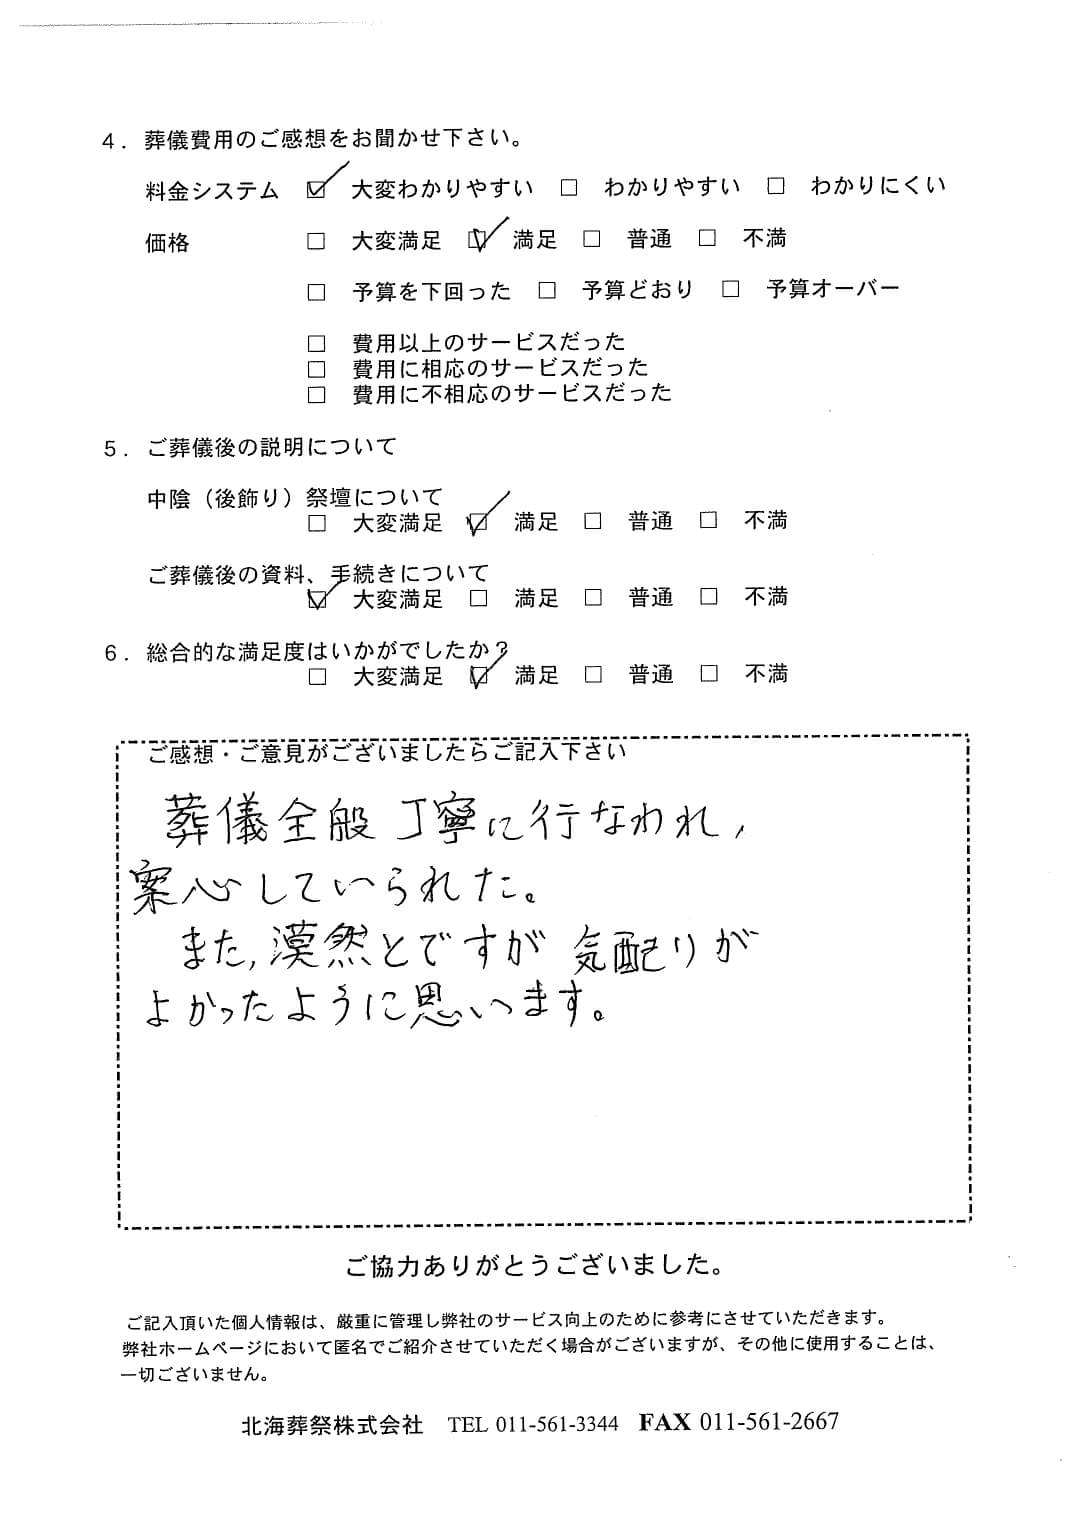 ４．葬儀費用のご感想をお聞かせ下さい。
料金システム ☑ 大変わかりやすい □ わかりやすい □ わかりにくい
価格 □ 大変満足 ☑ 満足 □ 普通 □ 不満
□ 予算を下回った □ 予算どおり □ 予算オーバー
□ 費用以上のサービスだった
□ 費用に相応のサービスだった
□ 費用に不相応のサービスだった
５．ご葬儀後の説明について
中陰（後飾り）祭壇について
□ 大変満足 ☑ 満足 □ 普通 □ 不満
ご葬儀後の資料、手続きについて
☑ 大変満足 □ 満足 □ 普通 □ 不満
６．総合的な満足度はいかがでしたか？
□ 大変満足 ☑ 満足 □ 普通 □ 不満
ご感想・ご意見がございましたらご記入下さい
葬儀全般丁寧に行なわれ，
案心していられた。
また，漠然とですが気配りが
よかったように思います。
ご協力ありがとうございました。
ご記入頂いた個人情報は、厳重に管理し弊社のサービス向上のために参考にさせていただきます。
弊社ホームページにおいて匿名でご紹介させていただく場合がございますが、その他に使用することは、
一切ございません。
北海葬祭株式会社 TEL 011-561-3344 FAX 011-561-2667